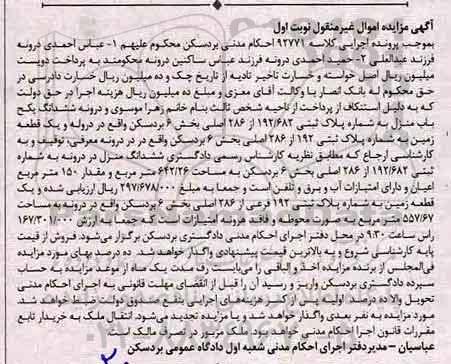 آگهی مزایده اموال غیرمنقول نوبت اول
بموجب پرونده اجرایی کلاسه ۹۲۷۷۱ احکام مدنی بردسکن محکوم علیهم ۱- عباس احمدی درونه
فرزند عبدالعلی ۲- حمید احمدی درونه فرزند عباس ساکنین درونه محکومند به پرداخت دویست
میلیون ریال اصل خواسته و خسارت تاخیر تادیه از تاریخ چک و ده میلیون ریال خسارت دادرسی در
حق محکوم له بانک انصار با وکالت آقای معزی و مبلغ ده میلیون ریال هزینه اجرا در حق دولت
که به دلیل استنکاف از پرداخت از ناحیه شخص ثالث بنام خانم زهرا موسوی و درونه ششدانگ یکباب
باب منزل به شماره پلاک ثبتی ۱۹۲/۶۸۲ از ۲۸۶ اصلی بخش ۶ بردسکن واقع در دروله و یک قطعه
زمین به شماره پلاک ثبتی ۱۹۲ از ۲۸۶ اصلی بخش ۶ بردسکن واقع در در درونه معرفی، توقیف و به
کارشناسی ارجاع که مطابق نظریه کارشناس رسمی دادگستری ششدانگ منزل در درونه به شماره
ثبتی ۱۹۲/۶۸۲ از ۲۸۶ اصلی بخش ۶ بردسکن به مساحت ۶۴۲/۲۶ متر مربع و مقدار ۱۵۰ متر مربع
اعیان و دارای امتیازات آب و برق و تلفن است و جمعا به مبلغ ۲۹۷/۶۷۸/۰۰۰ ریال ارزیابی شده و یک
قطعه زمین به شماره پلاک ثبتی ۱۹۲ فرعی از ۲۸۶ اصلی بخش ۶ بردسکن واقع در درونه به مساحت
۵۵۷/۶۷ متر مربع به صورت محوطه و فاقد هرگونه امتیازات است که جمعا به ارزش ۱۶۷/۳۰۱/۰۰۰
راس ساعت ۹:۳۰ در محل دفتر اجرای احکام مدنی دادگستری بردسکن برگزار می‌شود. فروش از قیمت
پایه کارشناسی شروع و به بالاترین قیمت پیشنهادی واگذار خواهد شد. ده درصد بهای مورد مزایده
فی‌المجلس از برنده مزایده اخذ و الباقی را می‌بایست ظرف مدت یک ماه از موعد مزایده به حساب
سپرده دادگستری بردسکن واریز و رسید آن را قبل از انقضای مهلت قانونی به اجرای احکام مدنی
تحویل والا ده درصد اولیه پس از کسر هزینه‌های اجرایی بنفع صندوق دولت ضبط خواهد شد.
مورد مزایده به نفر بعدی واگذار خواهد شد و یا مزایده تجدید می‌شود. انتقال ملک به خریدار تابع
مقررات قانون اجرا احکام مدنی خواهد بود ملک مزبور در تصرف مالک است.
عباسیان – مدیردفتر اجرای احکام مدنی شعبه اول دادگاه عمومی بردسکن